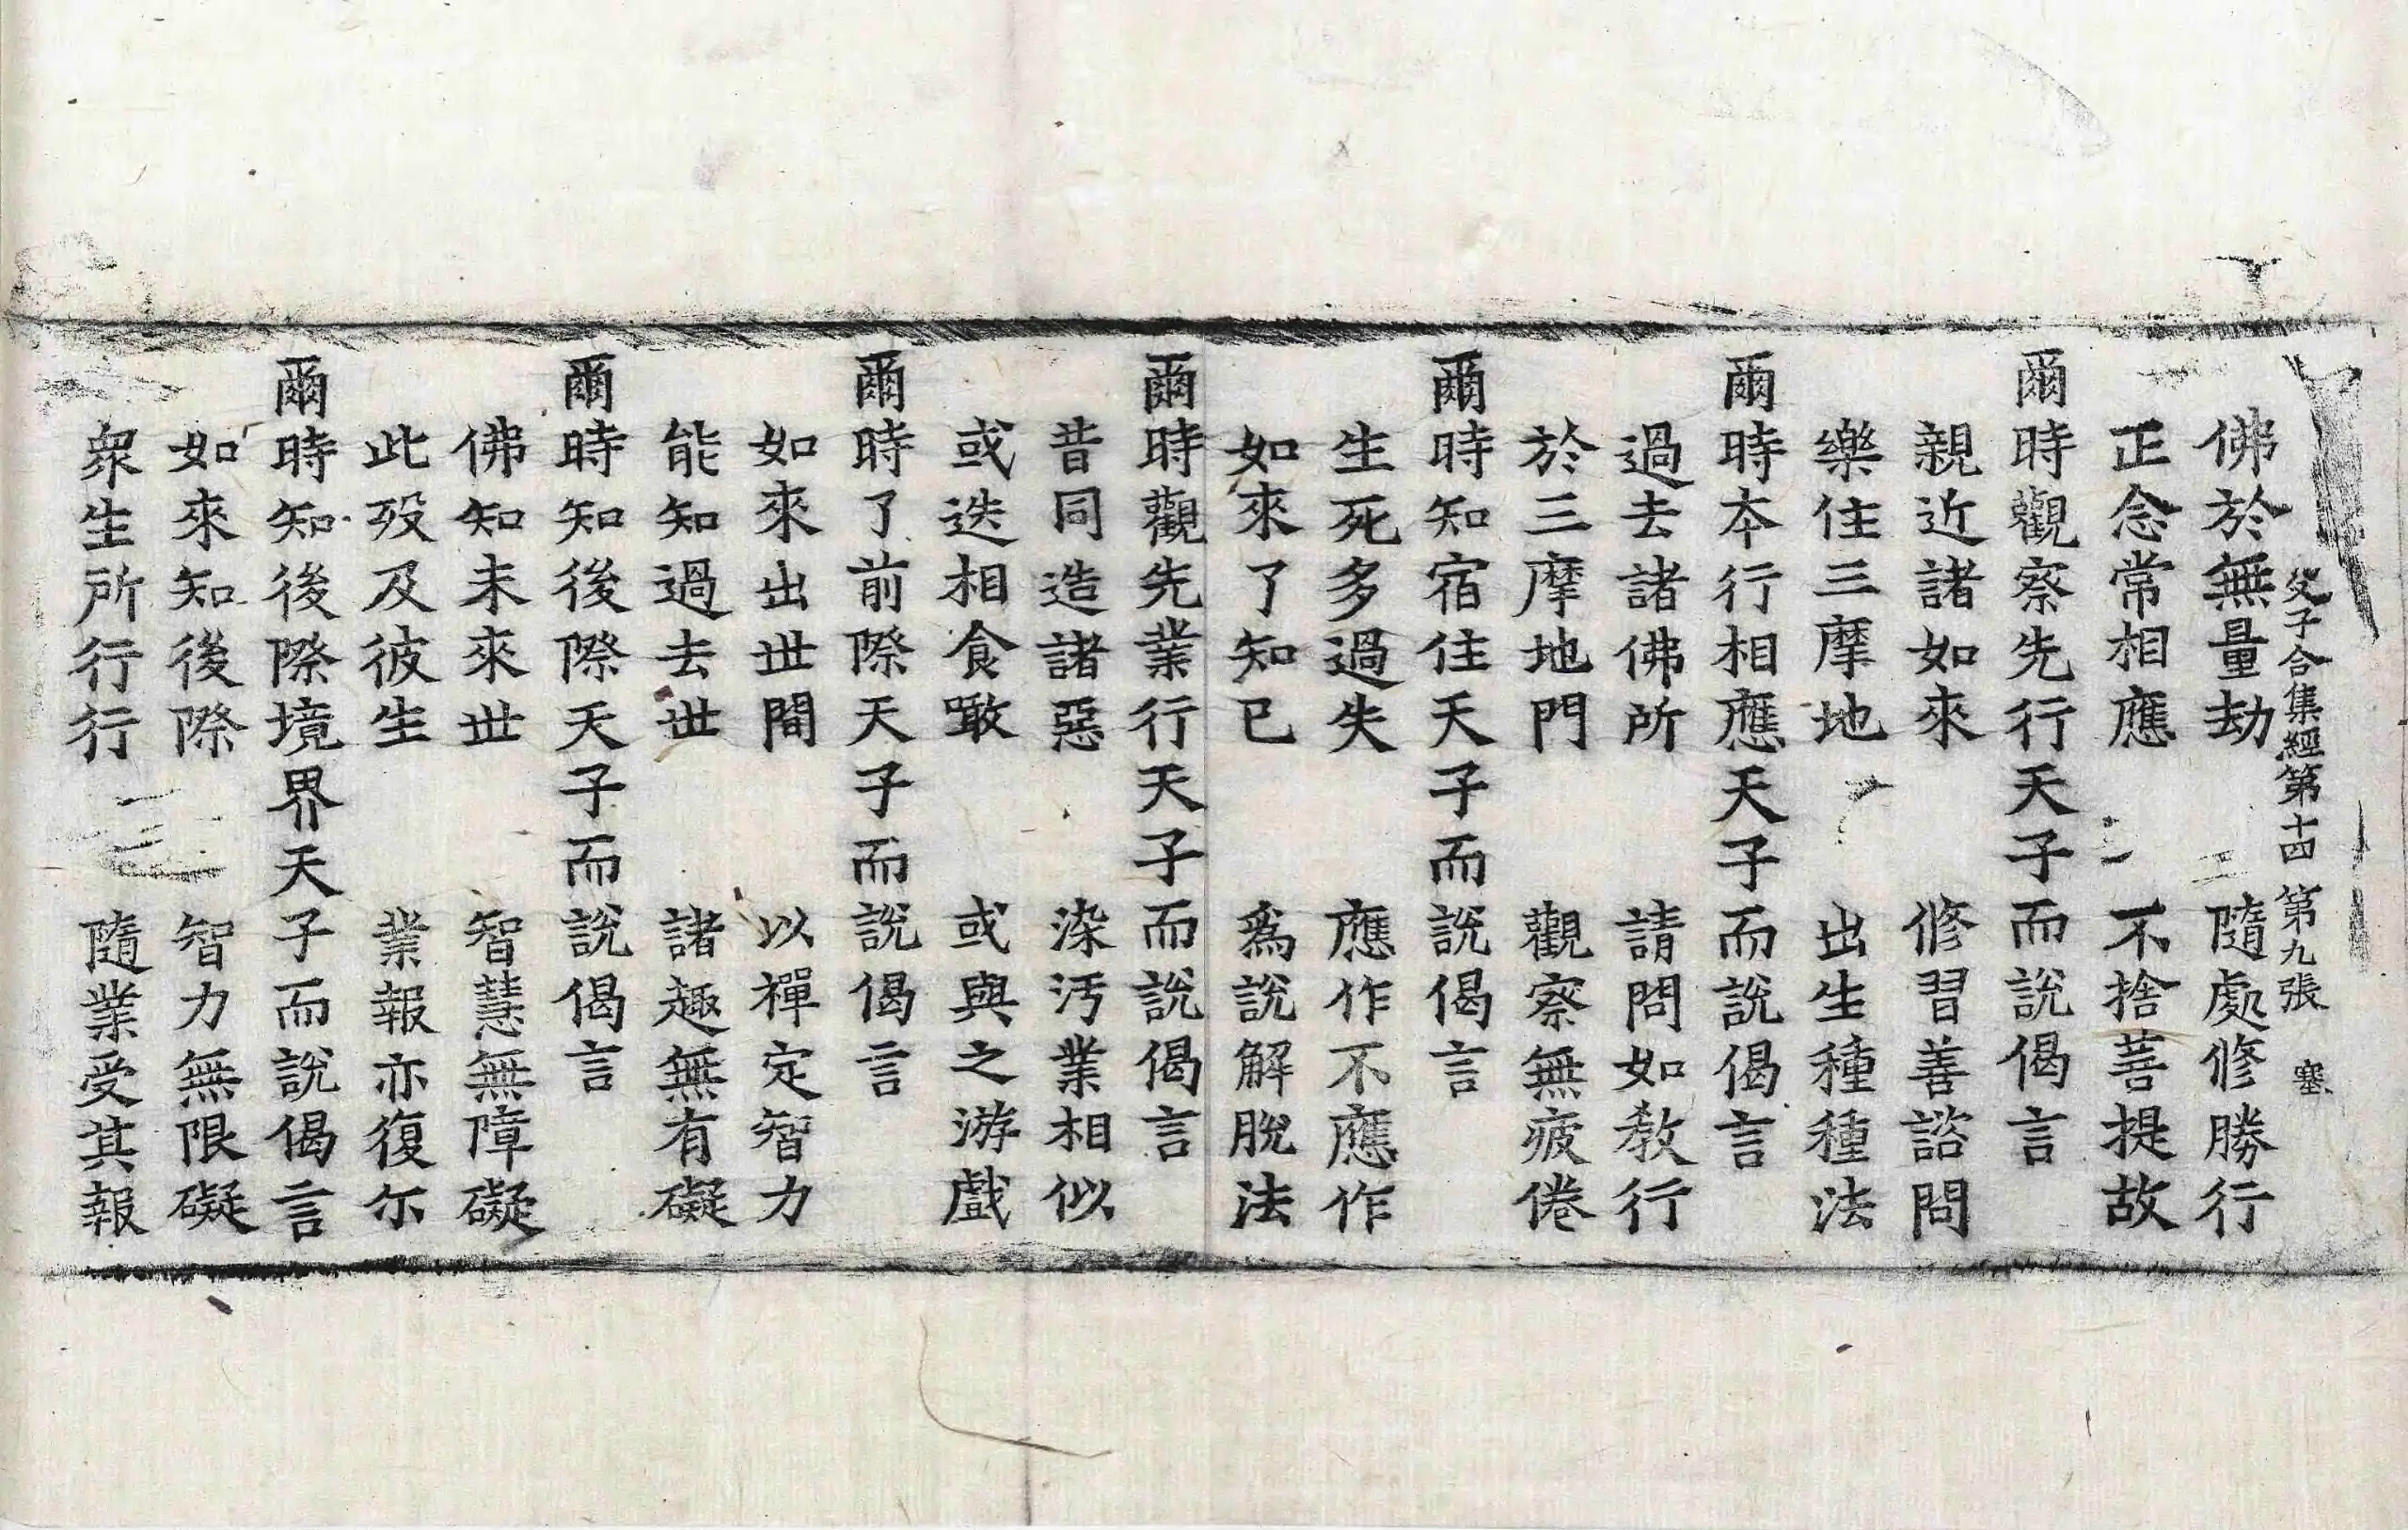 父子合集經第十四 第九張 塞
佛於無量劫 隨處修勝行
正念常相應 不捨菩提故
爾時觀察先行天子而說偈言
親近諸如來 修習善諮問
樂住三摩地 出生種種法
爾時本行相應天子而說偈言
過去諸佛所 請問如教行
於三摩地門 觀察無疲倦
爾時知宿住天子而說偈言
生死多過失 應作不應作
如來了知已 爲說解脫法
爾時觀先業行天子而說偈言
昔同造諸惡 染汚業相似
或迭相食噉 或與之游戲
爾時了前際天子而說偈言
如來出世間 以禪定智力
能知過去世 諸趣無有礙
爾時知後際天子而說偈言
佛知未來世 智慧無障礙
此歿及彼生 業報亦復尓
爾時知後際境界天子而說偈言
如來知後際 智力無限礙
衆生所行行 隨業受其報